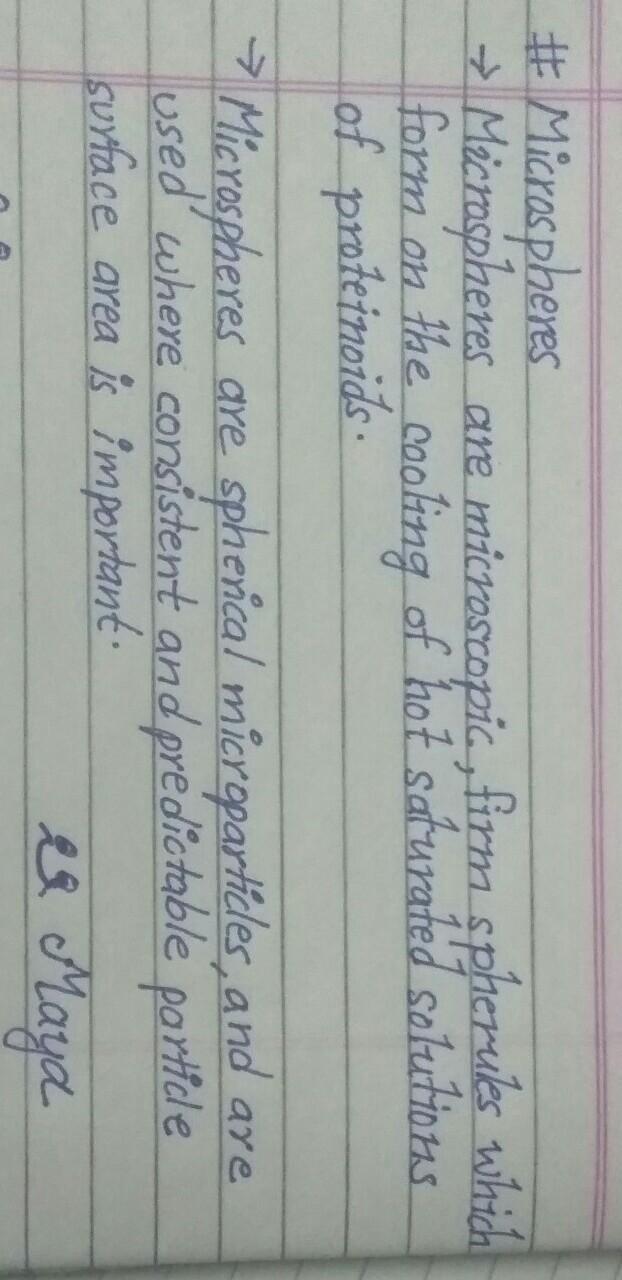 # Microspheres
→ Microspheres are microscopic, firm spherules which
form on the cooling of hot saturated solutions
of proteinoids.
→ Microspheres are spherical microparticles, and are
used where consistent and predictable particle
surface area is important.
Maya